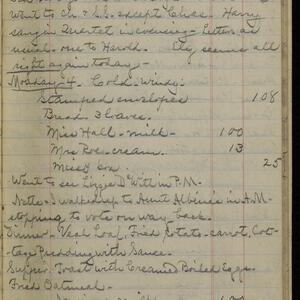 went to Ch. & S.S. except Chas. Harry
sang in Quartet in evening - Letters as
usual - one to Harold. City seems all
right again today -
Monday - 4. Cold - windy -
Stamped envelopes 1.08
Bread 3 loaves
Miss Hall - milk - 1.00
Mrs Roe - cream. 13
Miss 25
Went to see Lizzie D Witt in P.M.
Nette & I walked up to Aunt Albinia's in A.M.
stopping to vote on way back.
Dinner - Veal Loaf, Fried Potato - carrot, Cot-
tage Pudding with Sauce.
Supper. Toast with Creamed Boiled Eggs.
Fried Oatmeal -